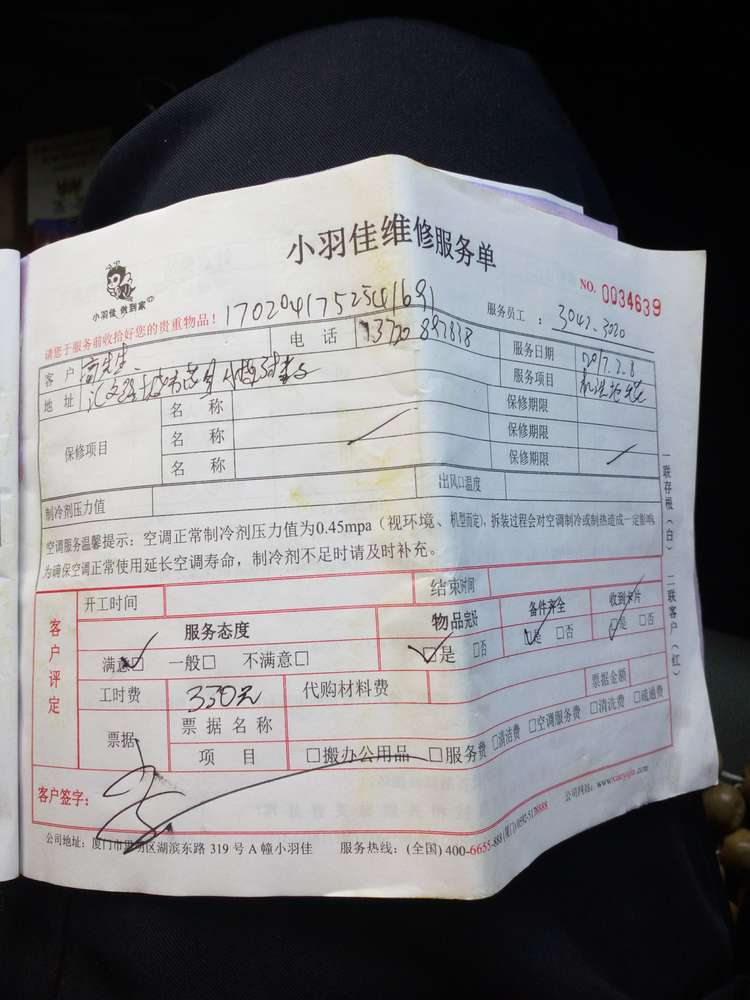 小羽佳维修服务单
小羽佳 做到家
NO. 0034639
请您于服务前收拾好您的贵重物品！
服务员工：3042-3020
客户 先生 电话 服务日期 2017.2.8
地址 服务项目
保修项目 名称 保修期限
名称 保修期限
名称 保修期限
制冷剂压力值 出风口温度
空调服务温馨提示：空调正常制冷剂压力值为0.45mpa（视环境、机型而定），拆装过程会对空调制冷或制热造成一定影响，
为确保空调正常使用延长空调寿命，制冷剂不足时请及时补充。
一联存根（白） 二联客户（红）
客户评定
开工时间 结束时间
服务态度 物品完好 备件齐全 收到卡片
满意□ 一般□ 不满意□ □是 □否 □是 □否 □是 □否
工时费 330元 代购材料费
票据 票据名称 票据金额
项目 □搬办公用品 □服务费 □清洁费 □空调服务费 □清洗费 □疏通费
客户签字：
公司地址：厦门市思明区湖滨东路 319 号 A 幢小羽佳 服务热线：(全国) 400-6655-888 (厦门) 0592-5178888 公司网站：www.xiaoyujia.com